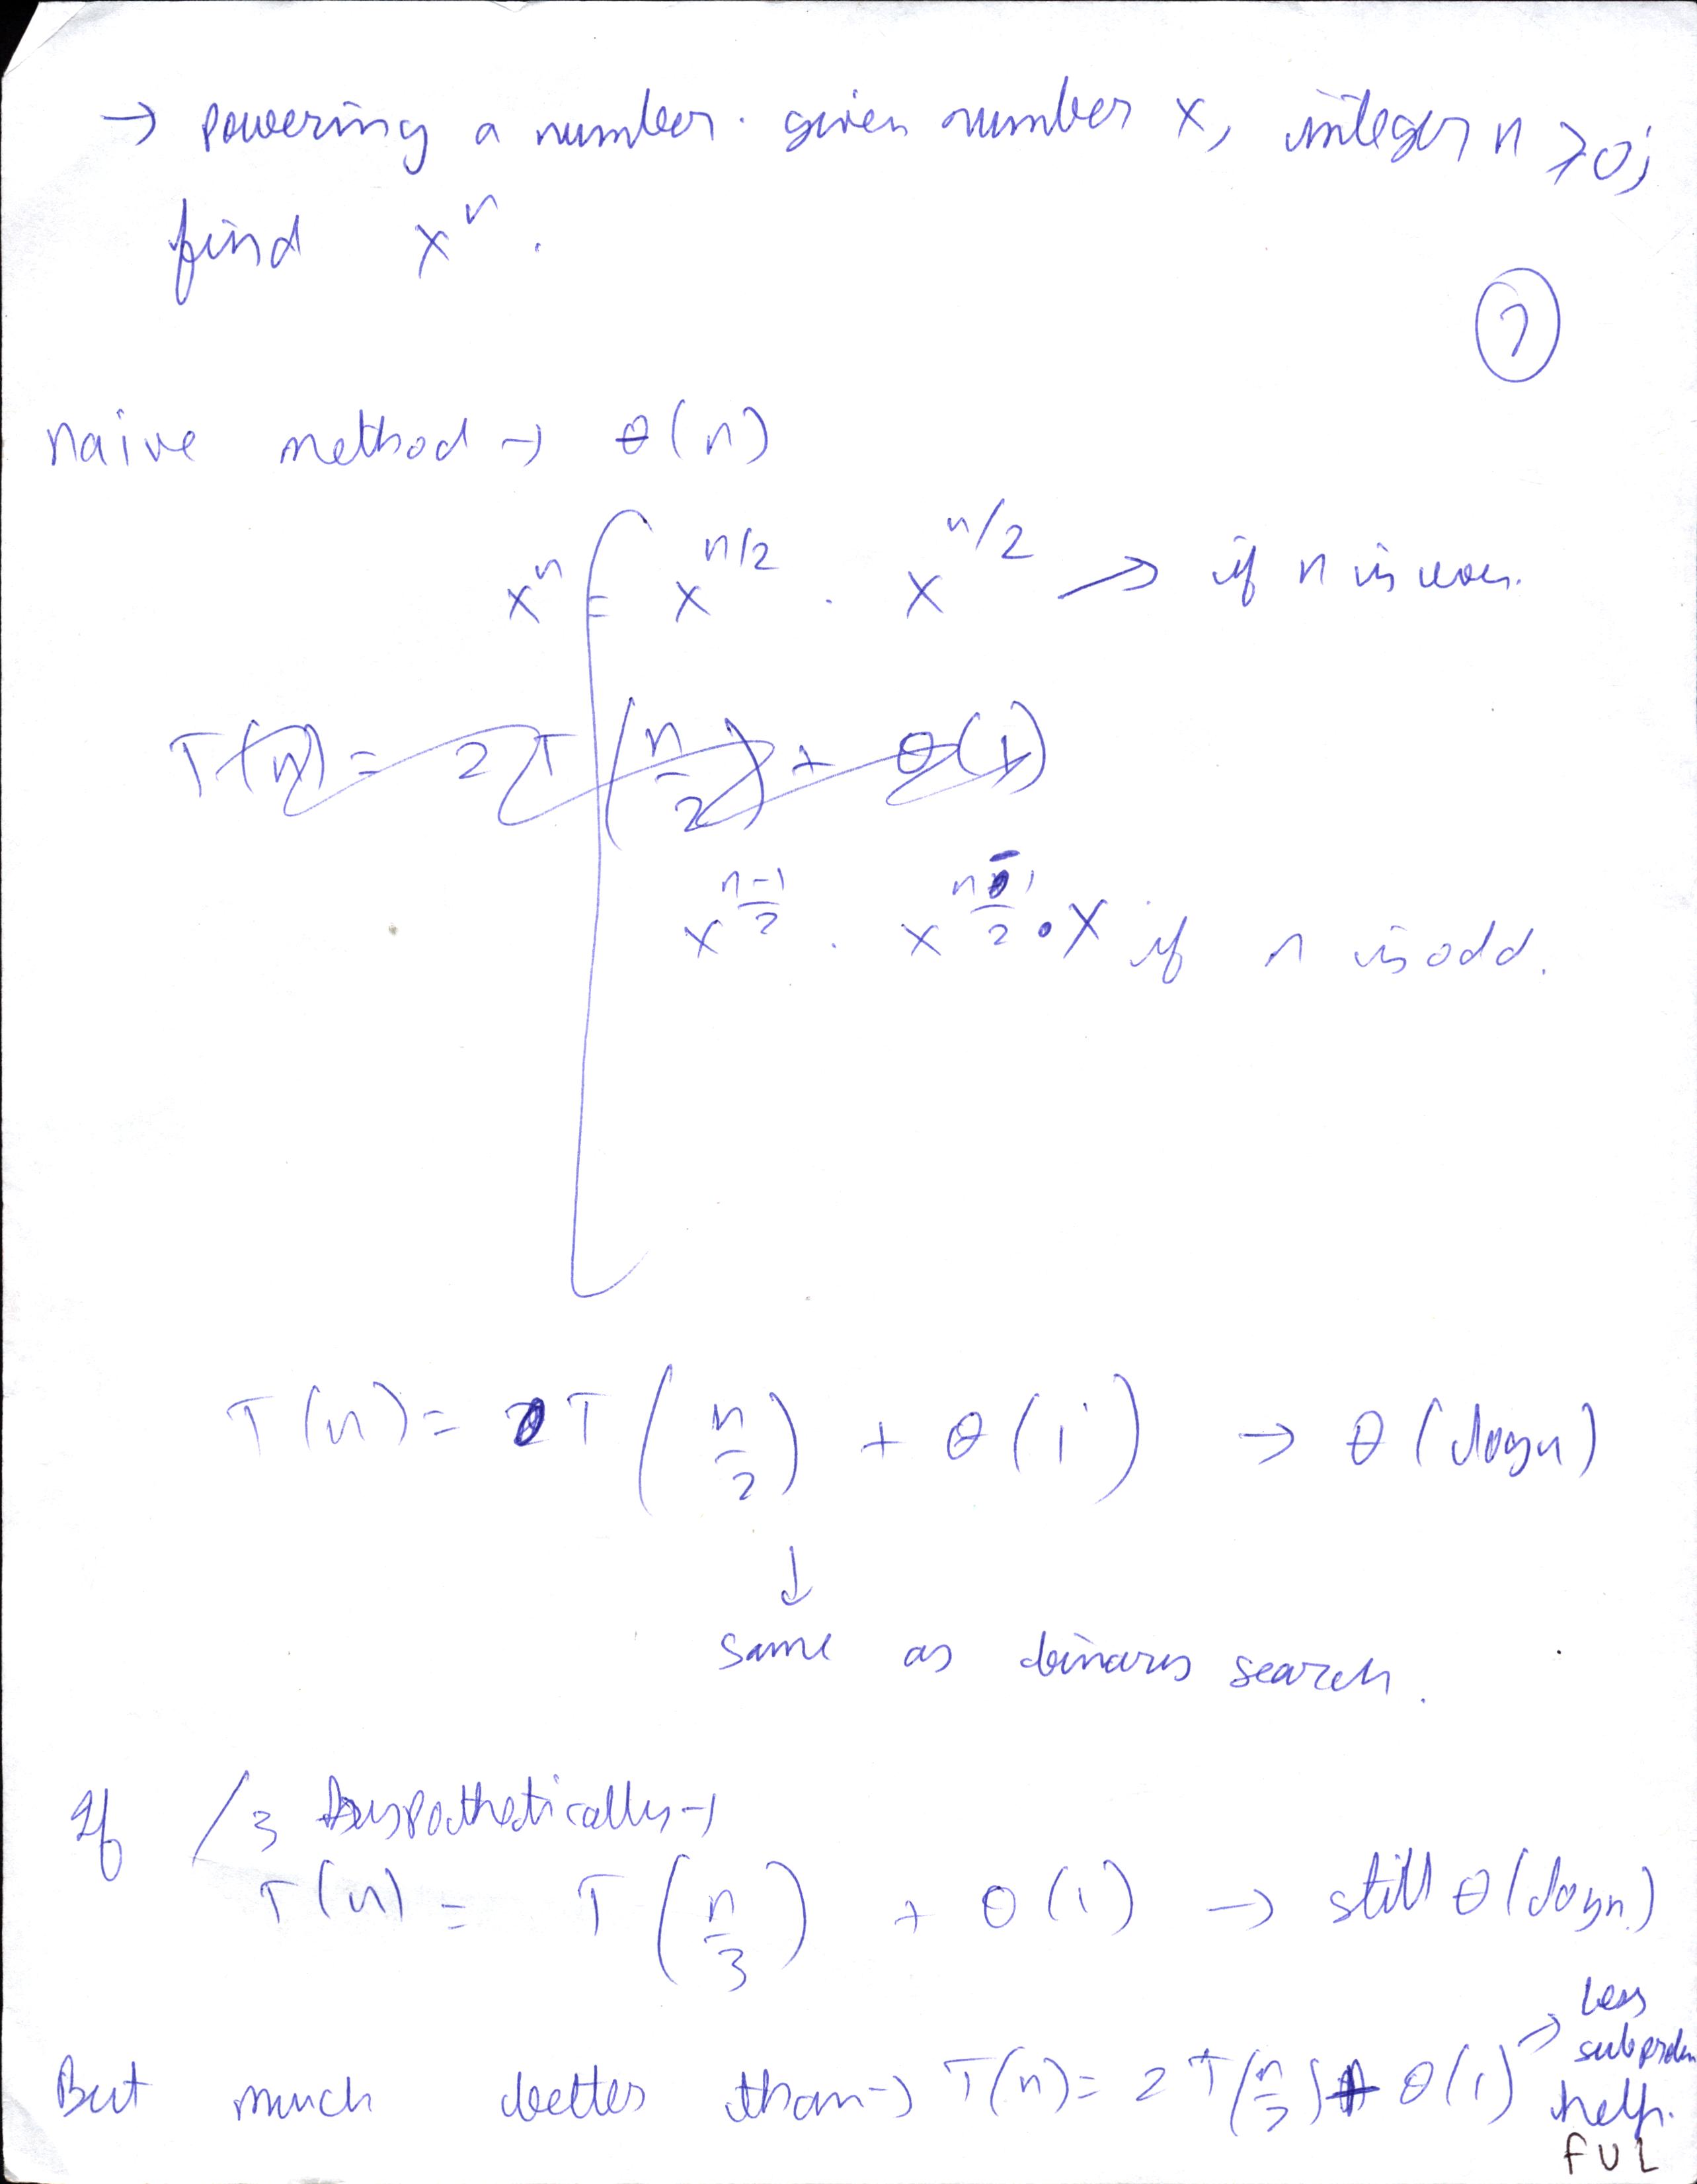 → Powering a number. given number x, integer n ≥ 0;
find xⁿ.
?
Naive method → θ(n)
xⁿ = x^(n/2) . x^(n/2) → if n is even.
T(n) = 2T(n/2) + θ(1)
x^((n-1)/2) . x^((n-1)/2) • x if n is odd.
T(n) = T(n/2) + θ(1) → θ(logn)
↓
same as binary search.
If /3 hypothetically →
T(n) = T(n/3) + θ(1) → still θ(logn)
But much better than → T(n) = 2T(n/2) + θ(1) → less
subprblm
help.
FUL